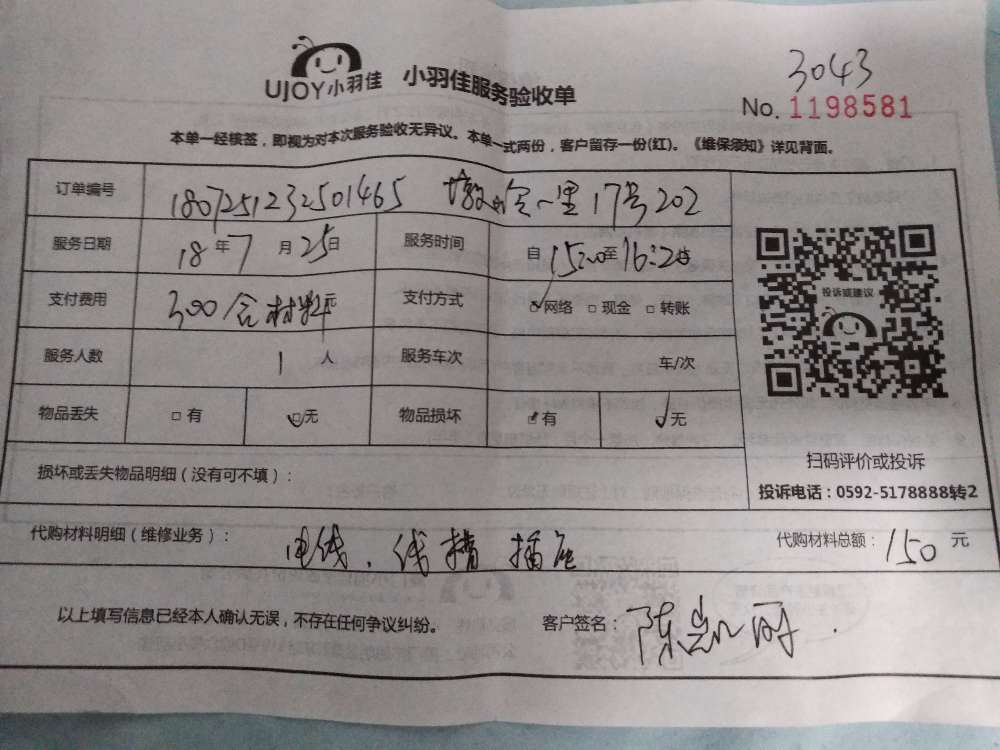 UJOY小羽佳 小羽佳服务验收单
3043
No. 1198581
本单一经核签，即视为对本次服务验收无异议。本单一式两份，客户留存一份(红)。《维保须知》详见背面。
订单编号 1807251232501465 里17号202
服务日期 18年7月25日 服务时间 自15:00至16:20
支付费用 300含材料 元 支付方式 ☑网络 □现金 □转账
服务人数 1人 服务车次 车/次
物品丢失 □有 ☑无 物品损坏 □有 ☑无
投诉或建议
扫码评价或投诉
投诉电话：0592-5178888转2
损坏或丢失物品明细（没有可不填）：
代购材料明细（维修业务）： 电线、线槽 插座 代购材料总额：150元
以上填写信息已经本人确认无误，不存在任何争议纠纷。 客户签名：陈